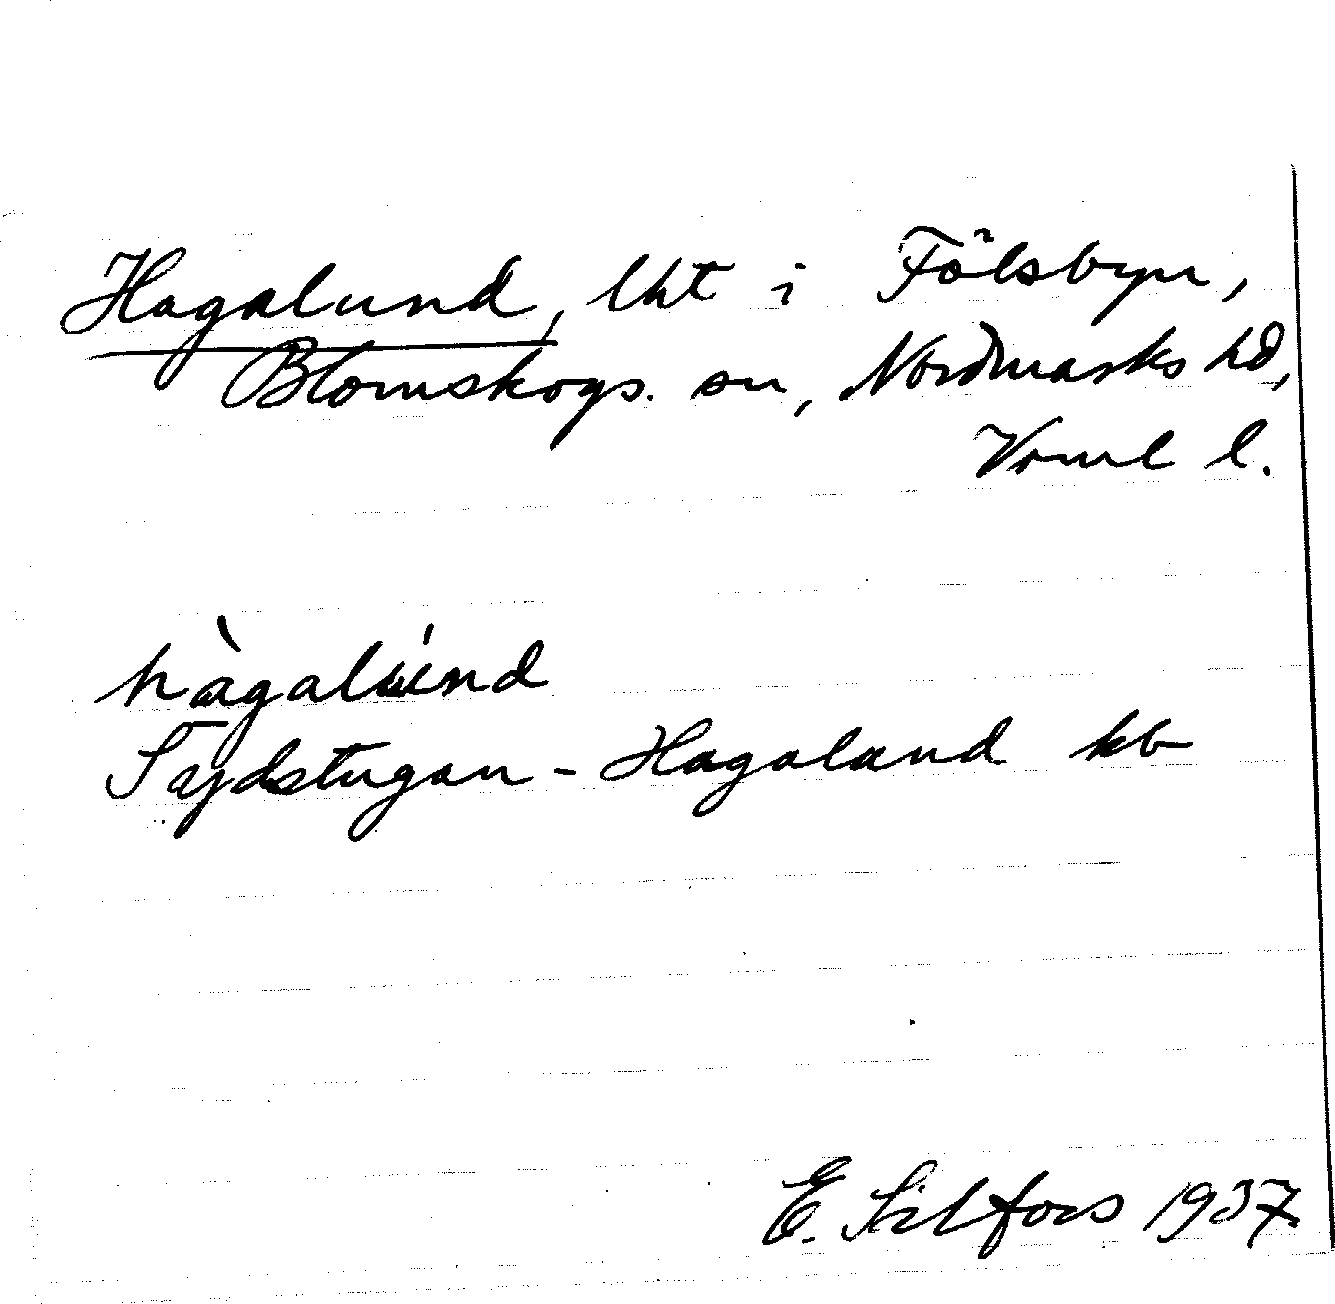 Hagalund, lht i Fölsbyn,
Blomskogs. sn, Nordmarks hd,
Vrml l.
hàgalúnd
Sydstugan - Hagalund kb
E. Silfors 1937